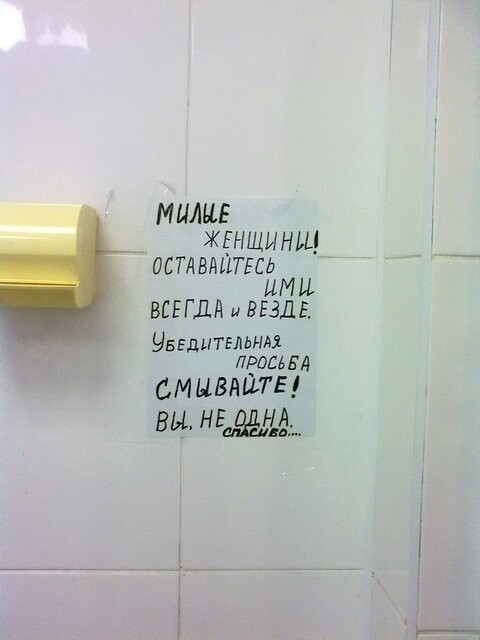 МИЛЫЕ
ЖЕНЩИНЫ!
ОСТАВАЙТЕСЬ
ИМИ
ВСЕГДА и ВЕЗДЕ.
УБЕДИТЕЛЬНАЯ
ПРОСЬБА
СМЫВАЙТЕ!
ВЫ, НЕ ОДНА.
СПАСИБО....